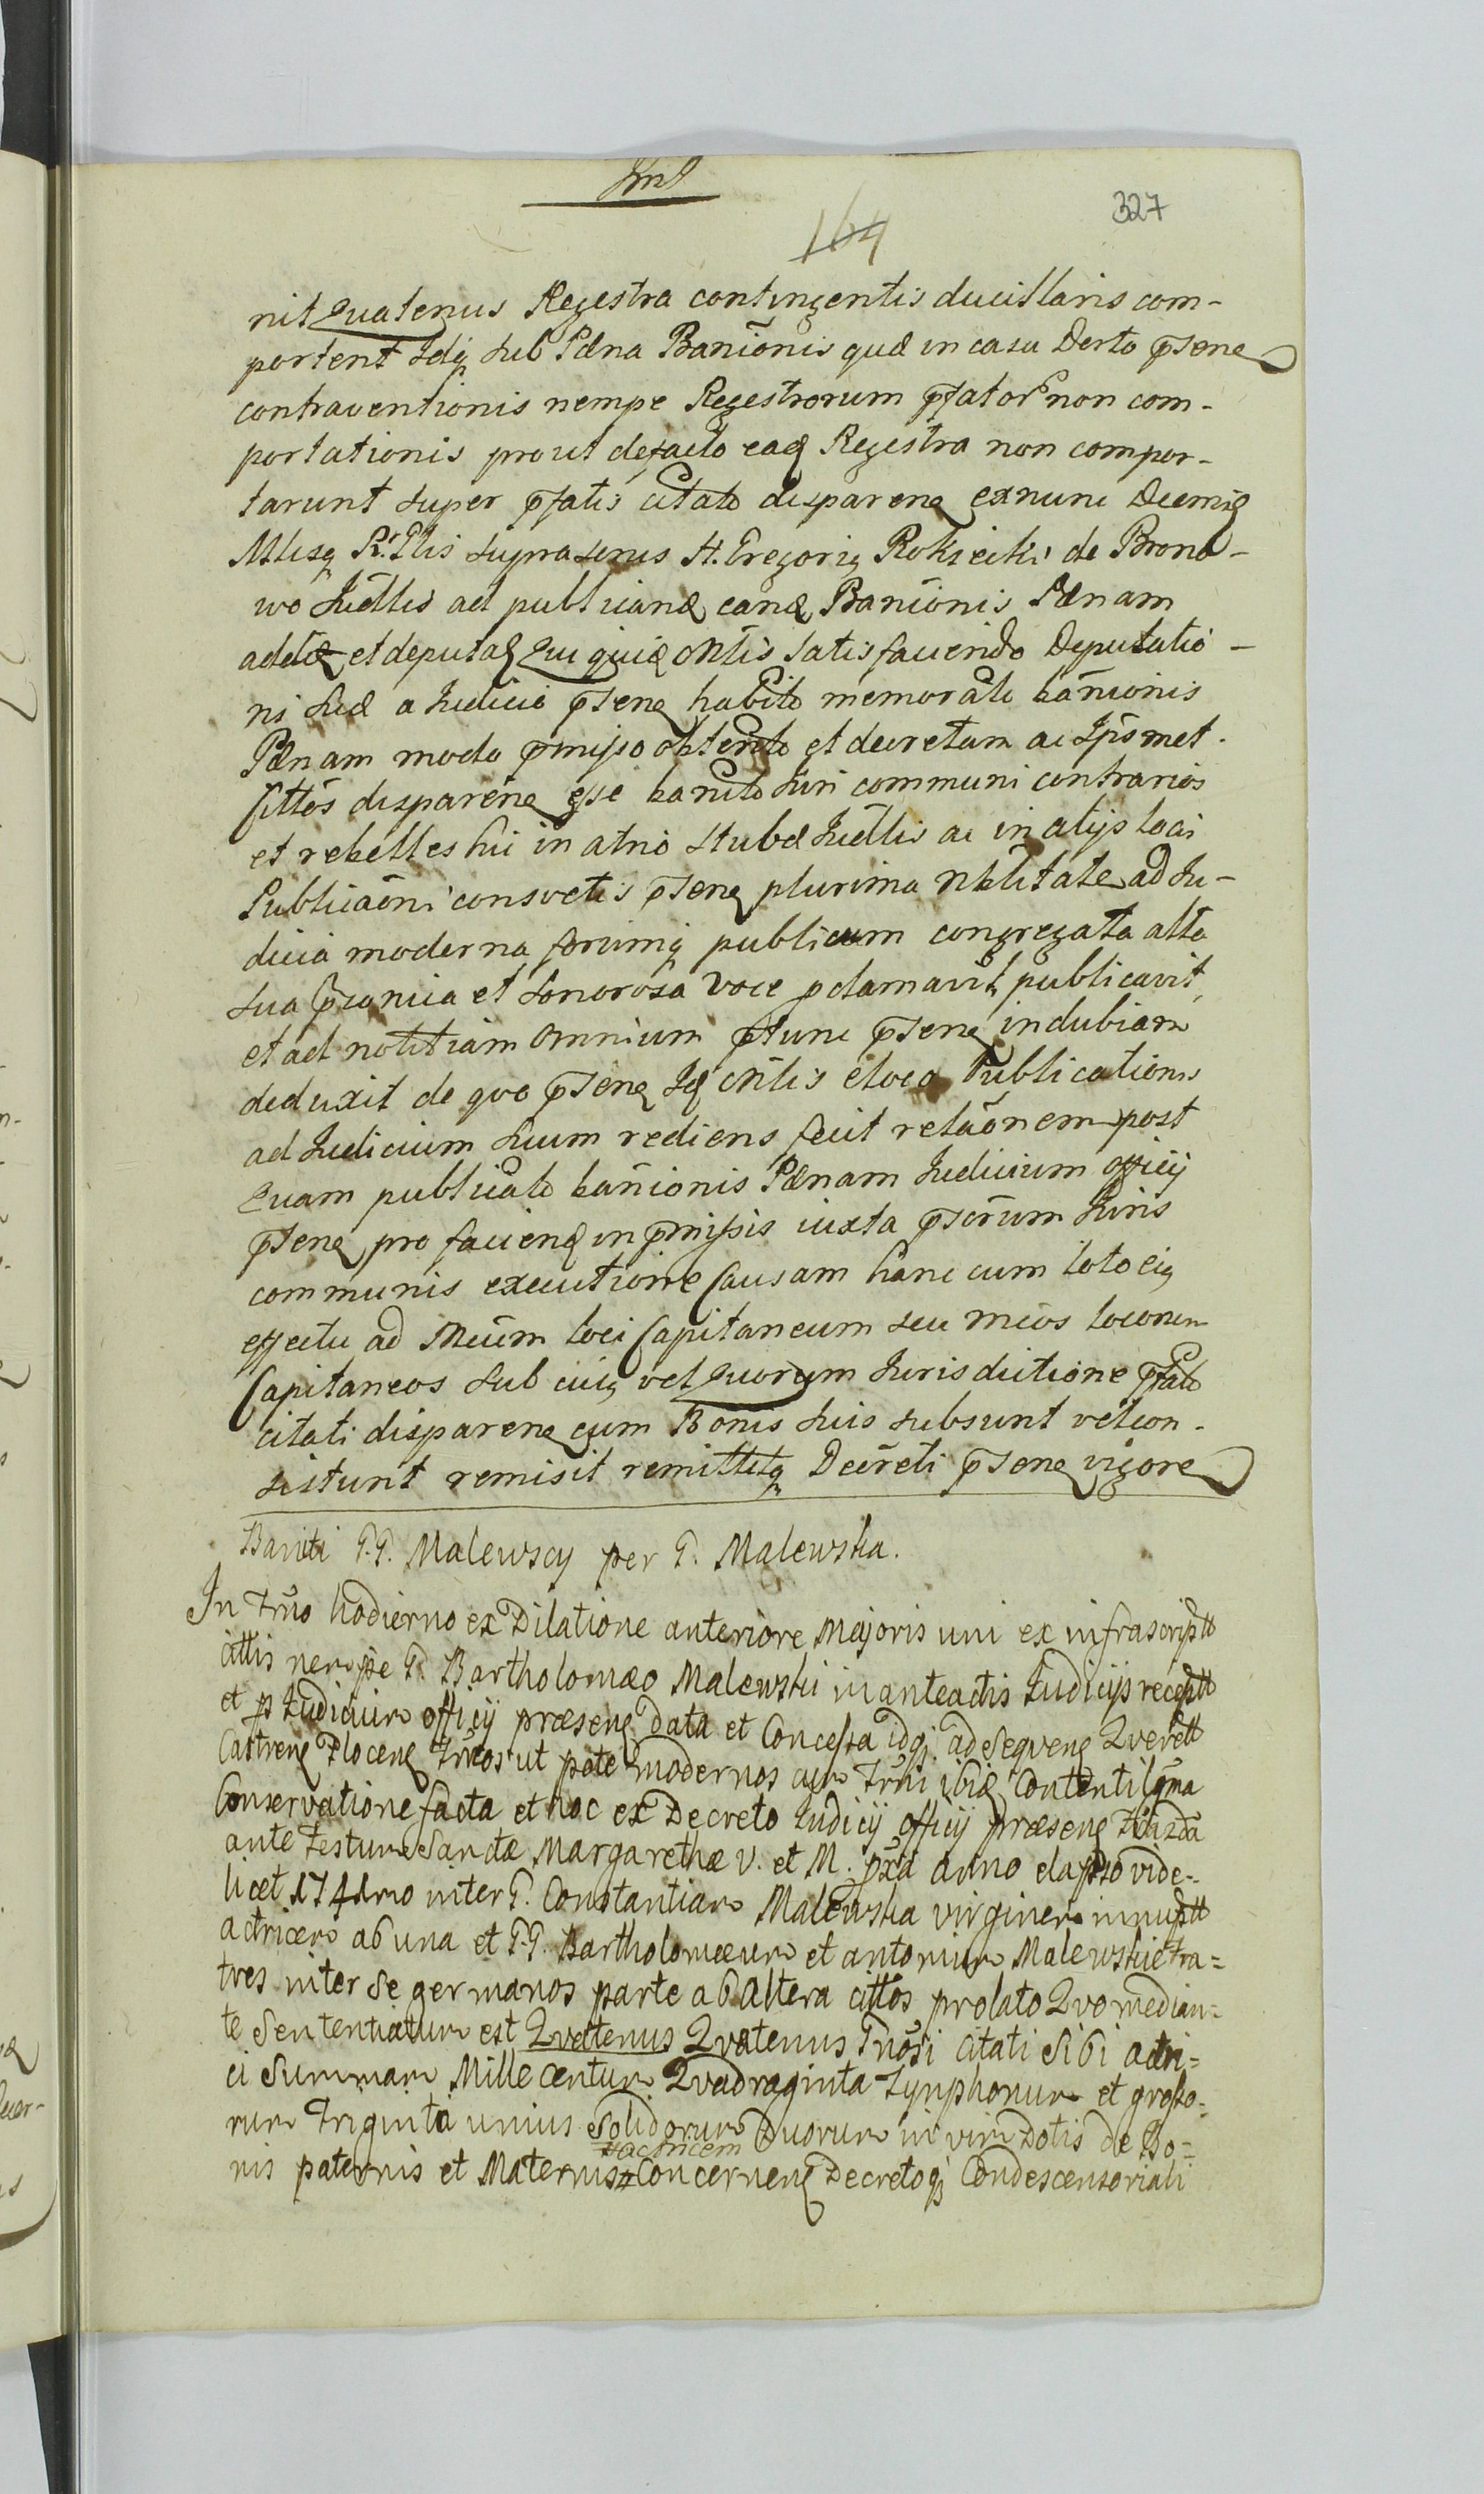 327
164
nit Quatenus Regestra contingentis ducillaris com-
portent Idq sub Pæna Banionis quæ in casu Derto pſene
contraventionis nempe Regestrorum pfator non com-
portationis prout defacto eaq Regestra non compor-
tarunt super pfatis citato disparenq exnunc
suprasenus St. Gregoriq Rokicki de Brono-
wo Judllis ad publicanq eanq Banionis Pænam
et deputaq Qui quiq satisfaciendo Deputatio-
ni suæ a Judicio pſenq habito memorato banionis
Pænam modo pmisso obtento et decretam ac Ipsmet
cittos disparenq esse banito Juri communi contrarios
et rebelles hic in atrio stubæ Judllis ac in alijs locis
Publicaoni consvetis pſenq plurima nblitate ad Ju-
dicia moderna forumq publicum congregata alta
sua psonica et sonorosa voce pclamavit, publicavit,
et ad notitiam omnium ptunc pſenq indubiam
deduxit de quo pſenq Iq ontlis eloco Publicationis
ad Judicium suum rediens fecit relaonem post
Quam publicato banionis Pænam Judicium officij
pſenq pro facienq in pmissis iuxta pſcrum Juris
communis executione Causam hanc cum toto eiq
effectu ad Mcum loci Capitaneum seu mcos locorum
Capitaneos sub cuiq vel Quorum Jurisdictione pfato
citati disparenq cum Bonis suis subsunt vel con-
sistunt remisit remittitq Decreti pſenq vigore
Baniti G.G. Malewscy per G. Malewska.
In Trno hodierno ex Dilatione anteriore Majoris uni ex infrascriptt
cittis nempe G. Bartholomæo Malewski in anteactis Judicijs receptt
et p Judicium officij præsenq Data et Concessa idq ad Seqvenq Qverell
Castrenq Plocenq Trnos ut pote modernos cum Trni ibiq
Conservatione facta et hoc ex Decreto Judicij officij præsenq
ante Festum Sanctæ Margarethæ V. et M. pxa anno elapso vide-
licet 1741mo inter G. Constantiam Malewska virginem innuptt
actricem ab una et G.G. Bartholomæum et antonium Malewskie fra=
tres inter se germanos parte ab altera cittos prolato Qvo median=
te Sententiatum est Qvatenus Qvatenus Gnosi citati sibi actri=
ci Summam Mille centum Qvadraginta Tynphonum et grosso=
rum Triginta unius Solidorum Duorum in vim Dotis de Bo=
actricem
nis paternis et Maternis Concernenq Decretoq Condescensoriali